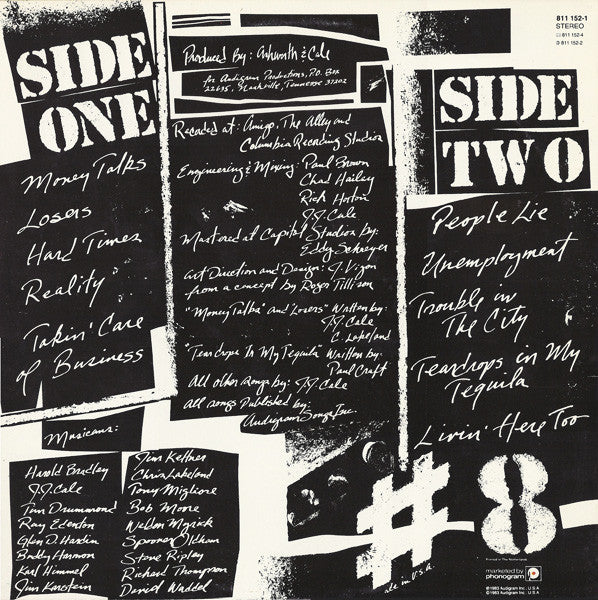 SIDE
ONE
Money Talks
Losers
Hard Times
Reality
Takin' Care
of Business
Produced by: Ashworth & Cale
for Audigram Productions, P.O. Box
22635, Nashville, Tennessee 37202
Recorded at: Amigo, The Alley and
Columbia Recording Studios
Engineering & Mixing: Paul Brown
Chad Hailey
Rick Horton
J.J. Cale
Mastered at Capitol Studios by:
Eddy Schreyer
Art Direction and Design: J. Vigon
from a concept by Roger Tillison
"Money Talks" and Losers" Written by:
J.J. Cale
C. Lakeland
"Teardrops In My Tequila" Written by:
Paul Craft
All other songs by: J.J. Cale
All songs Published by:
Audigram Songs Inc.
811 152-1
STEREO
811 152-4
811 152-2
SIDE
TWO
People Lie
Unemployment
Trouble in
The City
Teardrops in My
Tequila
Livin' Here Too
Musicians:
Harold Bradley
J.J. Cale
Tim Drummond
Ray Edenton
Glen D. Hardin
Buddy Harmon
Karl Himmel
Jim Karstein
Jim Keltner
Chris Lakeland
Tony Migliore
Bob Moore
Weldon Myrick
Spooner Oldham
Steve Ripley
Richard Thompson
David Waddel
#8
Printed in The Netherlands
marketed by
phonogram
©1983 Audigram Inc. U.S.A.
℗1983 Audigram Inc. U.S.A.
ade in U.S.A.